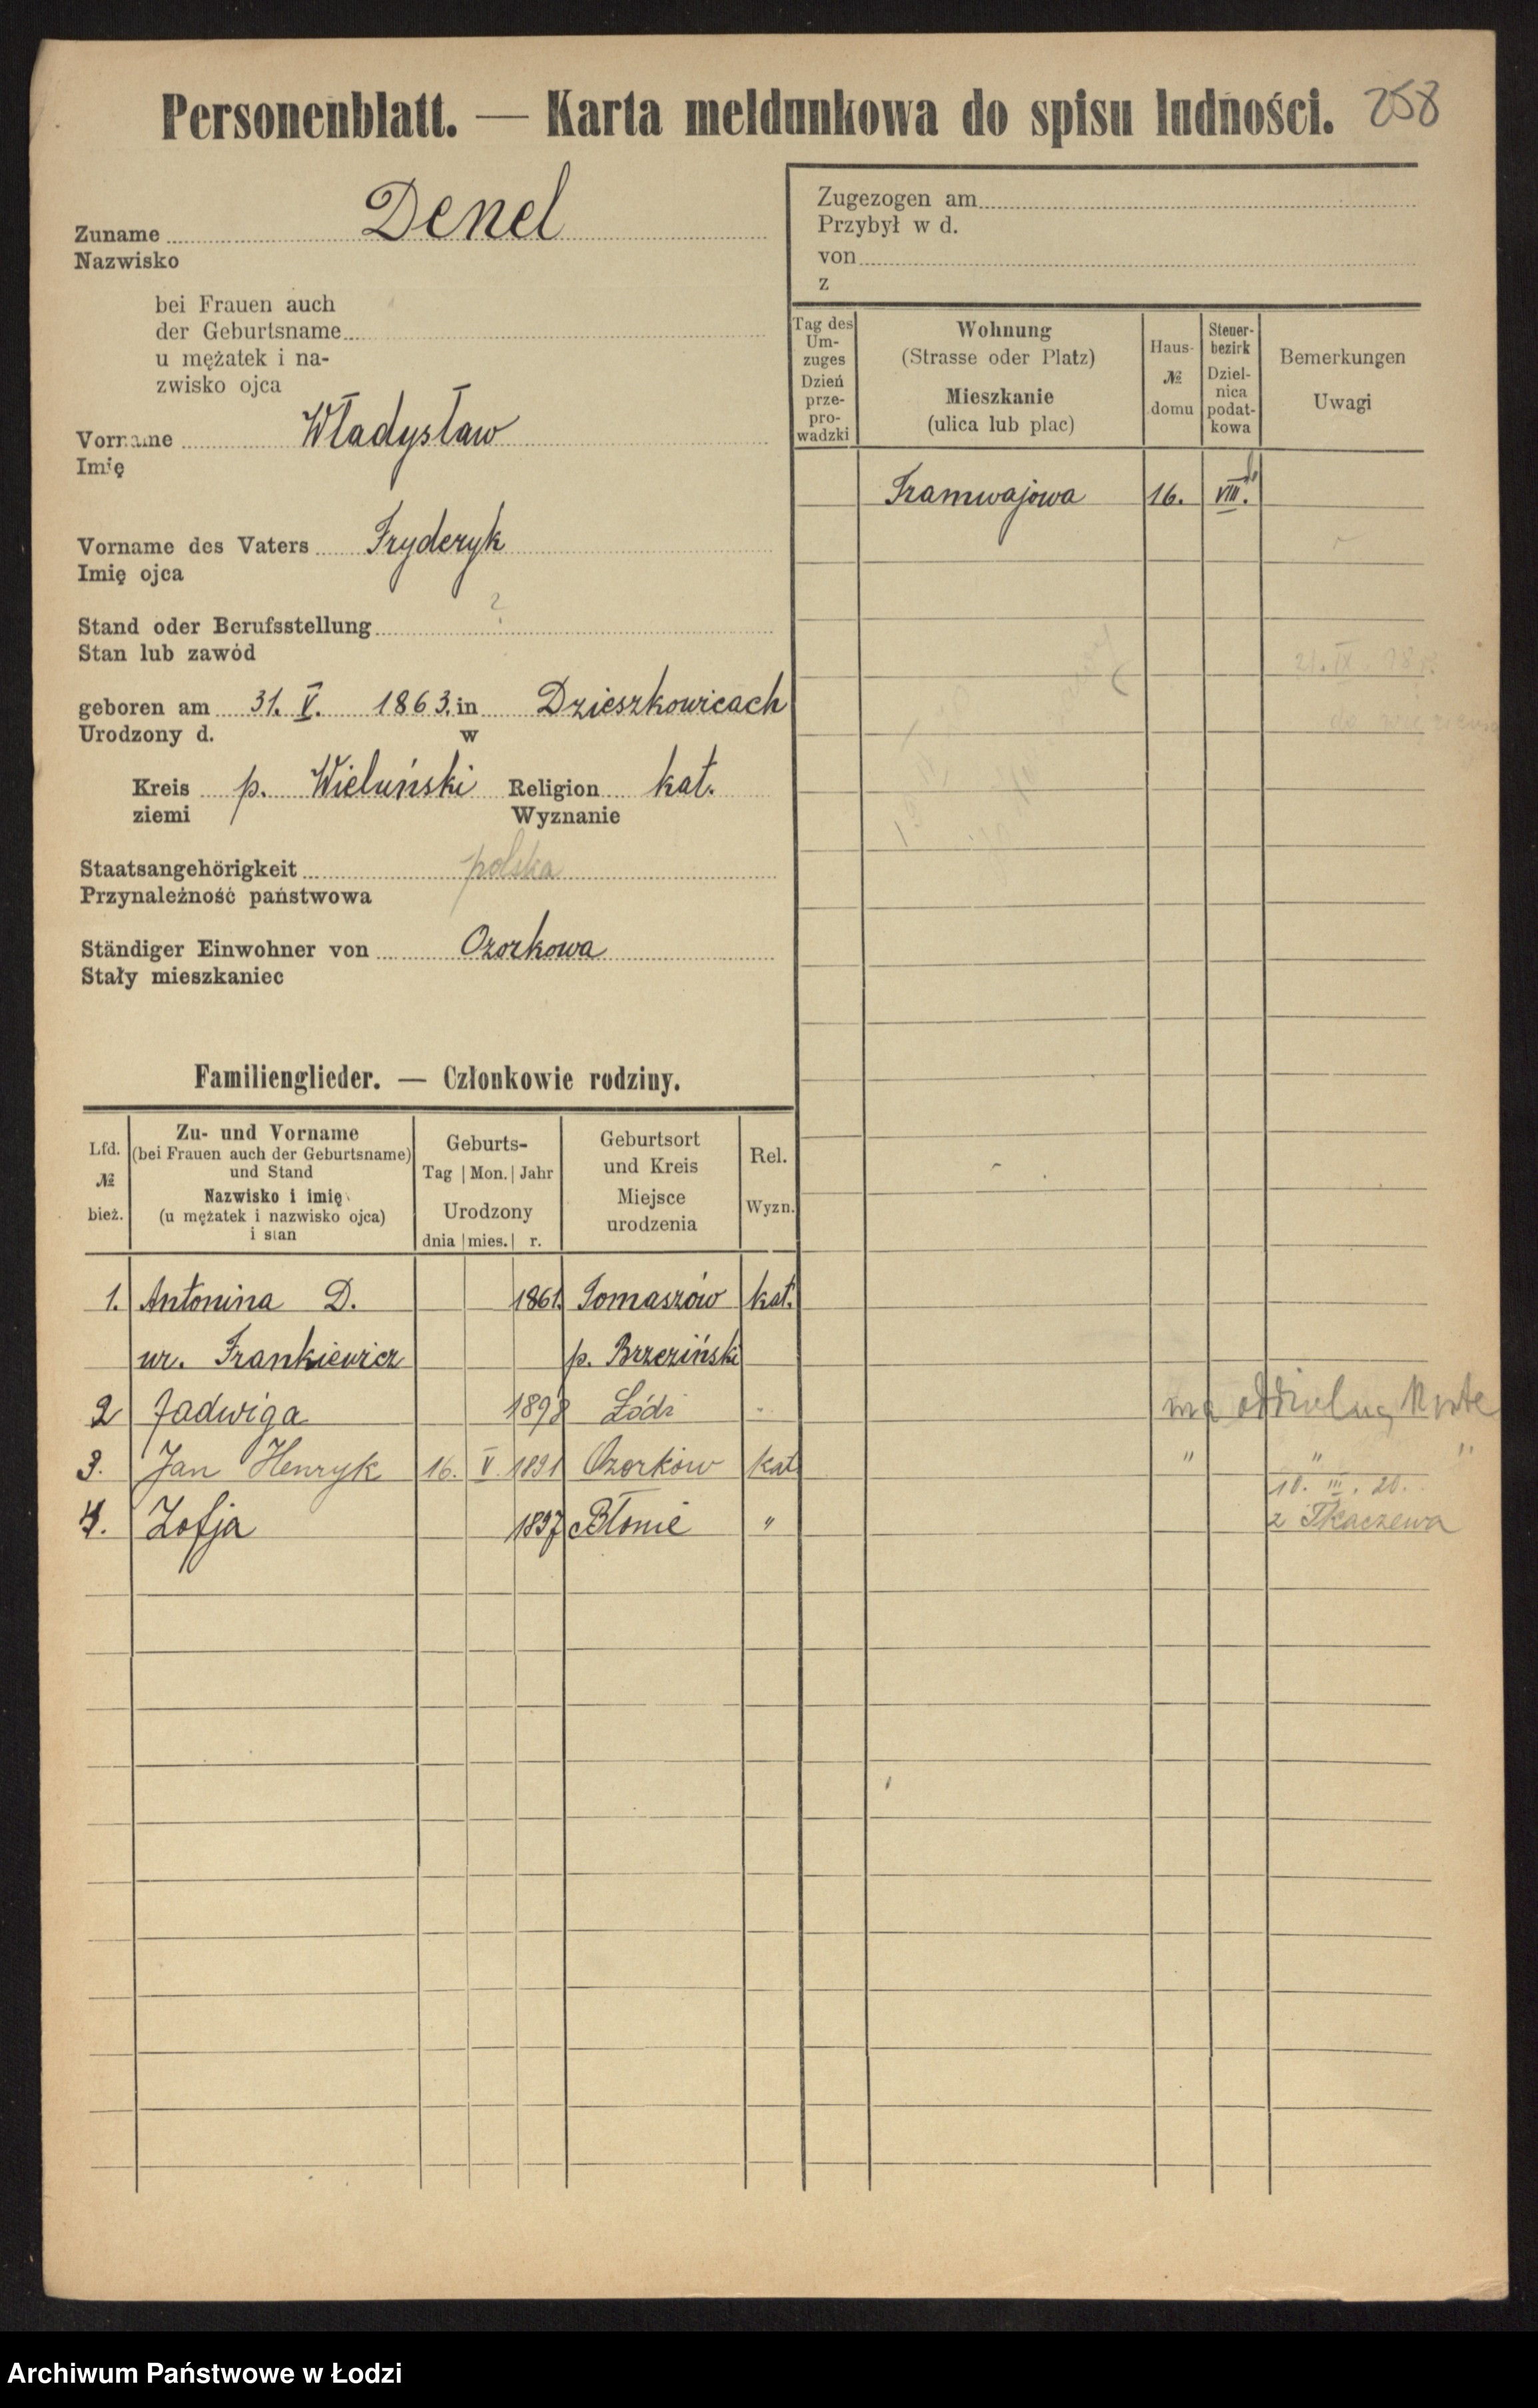 Personenblatt. — Karta meldunkowa do spisu ludności. 258
Zuname Denel
Nazwisko
bei Frauen auch
der Geburtsname
u mężatek i na-
zwisko ojca
Vorname Władysław
Imię
Vorname des Vaters Fryderyk
Imię ojca
Stand oder Berufsstellung ?
Stan lub zawód
geboren am 31. V. 1863. in Dzieszkowicach
Urodzony d. w
Kreis p. Wieluński Religion kat.
ziemi Wyznanie
Staatsangehörigkeit polska
Przynależność państwowa
Ständiger Einwohner von Ozorkowa
Stały mieszkaniec
Zugezogen am
Przybył w d.
von
z
Tag des
Um-
zuges
Dzień
prze-
pro-
wadzki
Wohnung
(Strasse oder Platz)
Mieszkanie
(ulica lub plac)
Haus-
№
domu
Steuer-
bezirk
Dziel-
nica
podat-
kowa
Bemerkungen
Uwagi
Tramwajowa 16. VIII.
21. IX. 18
do
Familienglieder. — Członkowie rodziny.
Lfd.
№
bież.
Zu- und Vorname
(bei Frauen auch der Geburtsname)
und Stand
Nazwisko i imię
(u mężatek i nazwisko ojca)
i stan
Geburts-
Tag | Mon. | Jahr
Urodzony
dnia | mies. | r.
Geburtsort
und Kreis
Miejsce
urodzenia
Rel.
Wyzn.
1. Antonina D. 1861. Tomaszów kat.
ur. Frankiewicz p. Brzeziński
2 Jadwiga 1898 Łódź " ma oddzielną kartę
3. Jan Henryk 16. V. 1891 Ozorków kat " " "
10. III. 20.
4. Zofja 1897 Błonie " z Tkaczewa
Archiwum Państwowe w Łodzi